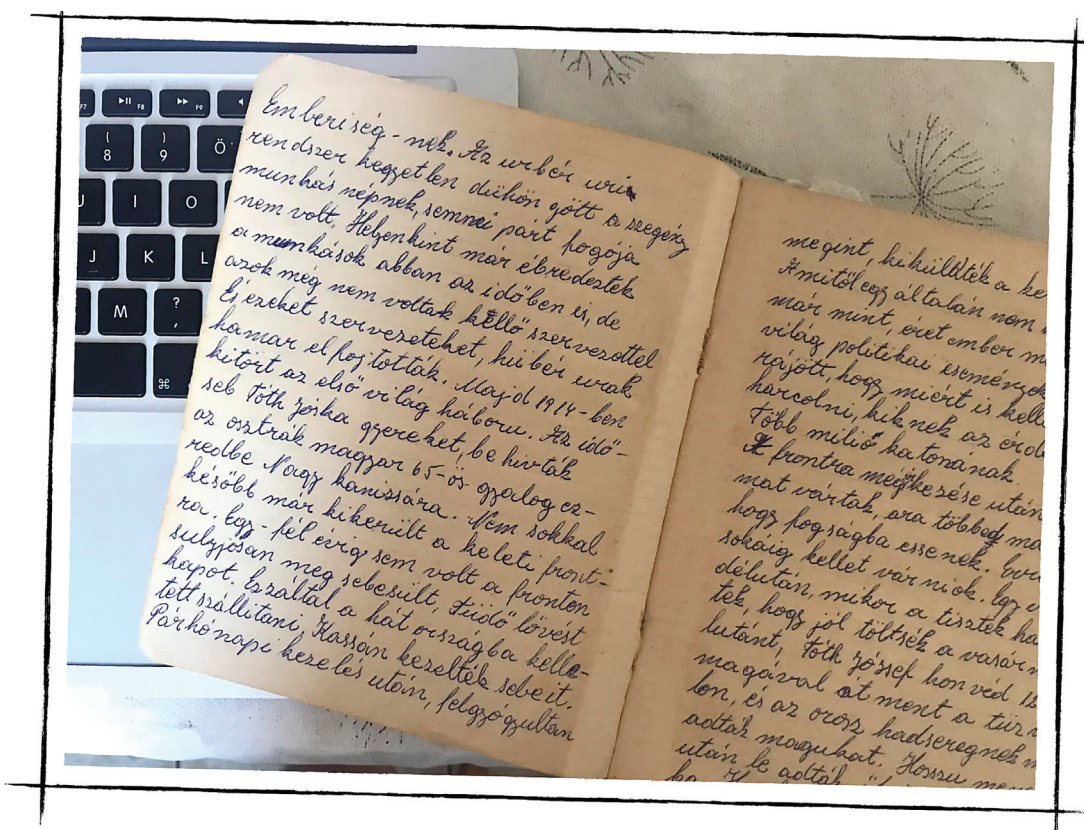 F7 F8 F9
( ) 
8 9 Ö
I O
J K L
M ? ,
⌘
Emberiség-nek. Az urbéri uri
rendszer kegyetlen dühön gött a szegény
munkás népnek, semmi párt fogója
nem volt. Helyenkint már ébredeztek
a munkások abban az időben is, de
azok még nem voltak kellő szervezettel
És ezeket szervezeteket, hübéri urak
hamar elfojtották. Majd 1914-ben
kitört az első világ háboru. Az idő-
seb Tóth Jóska gyereket, be hivták
az osztrák magyar 65-ös gyalog ez-
redbe Nagy kanizsára. Nem sokkal
később már kikerült a keleti front-
ra. Egy-fél évig sem volt a fronton
sulyjosan meg sebesült, tüdő lövést
kapot. Ezáltal a hát országba kelle-
tett szállitani, Kassán kezelték sebeit.
Párhónapi kezelés után, felgyógyultan
megint, kiküldték a ke
Amitől egyáltalán nem
már mint, éret ember m
világ politikai események
rájött, hogy miért is kell
harcolni, kiknek az érde
Több milió katonának
A frontra megérkezése után
mat vártak, ara többed ma
hogy fogságba essenek.
sokáig kellet várniok. Egy v
délután, mikor a tisztek ha
tek, hogy jól töltsék a vasárn
lutánt, Tóth József honvéd 12
magával át ment a tüz v
lon, és az orosz hadseregnek m
adták magukat. Hosszu men
után le adták